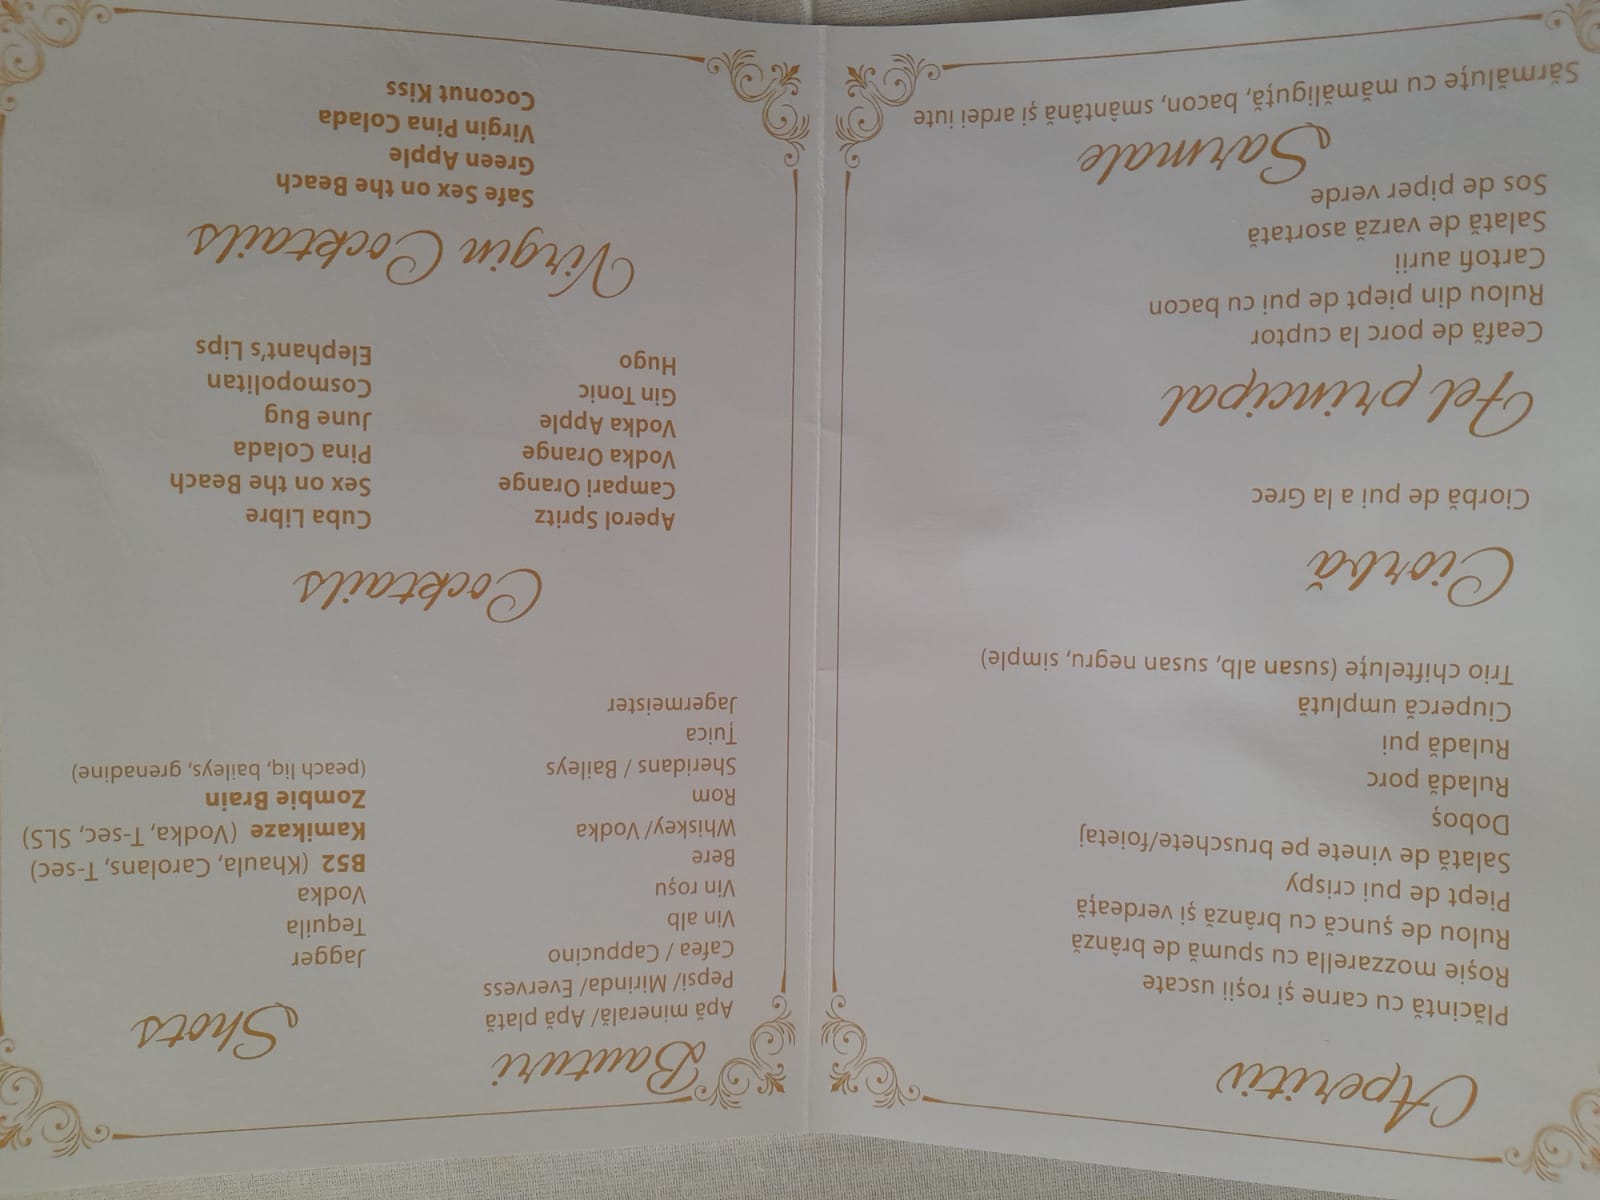 Aperitiv
Plăcintă cu carne și roșii uscate
Roșie mozzarella cu spumă de brânză
Rulou de șuncă cu brânză și verdeață
Piept de pui crispy
Salată de vinete pe bruschete/foietaj
Doboș
Ruladă porc
Ruladă pui
Ciupercă umplută
Trio chifteluțe (susan alb, susan negru, simple)
Ciorbă
Ciorbă de pui a la Grec
Fel principal
Ceafă de porc la cuptor
Rulou din piept de pui cu bacon
Cartofi aurii
Salată de varză asortată
Sos de piper verde
Sarmale
Sărmăluțe cu mămăliguță, bacon, smântână și ardei iute
Bauturi
Apă minerală/ Apă plată
Pepsi/ Mirinda/ Evervess
Cafea / Cappucino
Vin alb
Vin roșu
Bere
Whiskey/ Vodka
Rom
Sheridans / Baileys
Țuica
Jagermeister
Shots
Jagger
Tequila
Vodka
B52 (Khaula, Carolans, T-sec)
Kamikaze (Vodka, T-sec, SLS)
Zombie Brain
(peach liq, baileys, grenadine)
Cocktails
Aperol Spritz
Campari Orange
Vodka Orange
Vodka Apple
Gin Tonic
Hugo
Cuba Libre
Sex on the Beach
Pina Colada
June Bug
Cosmopolitan
Elephant's Lips
Virgin Cocktails
Safe Sex on the Beach
Green Apple
Virgin Pina Colada
Coconut Kiss